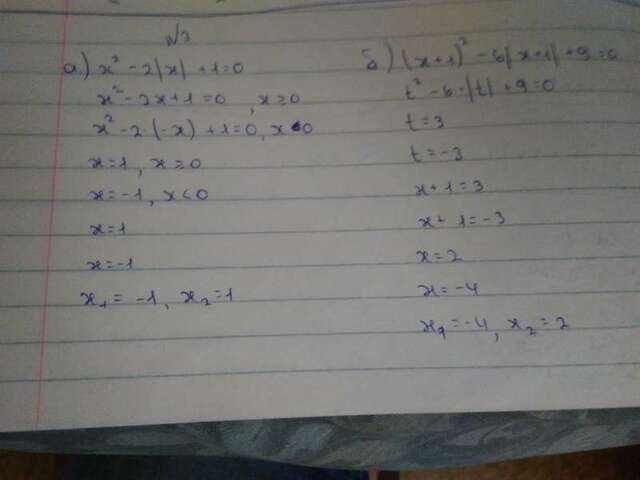 №3
а) x² - 2|x| + 1 = 0
x² - 2x + 1 = 0 , x ≥ 0
x² - 2(-x) + 1 = 0, x < 0
x = 1 , x ≥ 0
x = -1 , x < 0
x = 1
x = -1
x₁ = -1, x₂ = 1
б) (x+1)² - 6|x+1| + 9 = 0
t² - 6·|t| + 9 = 0
t = 3
t = -3
x + 1 = 3
x + 1 = -3
x = 2
x = -4
x₁ = -4, x₂ = 2